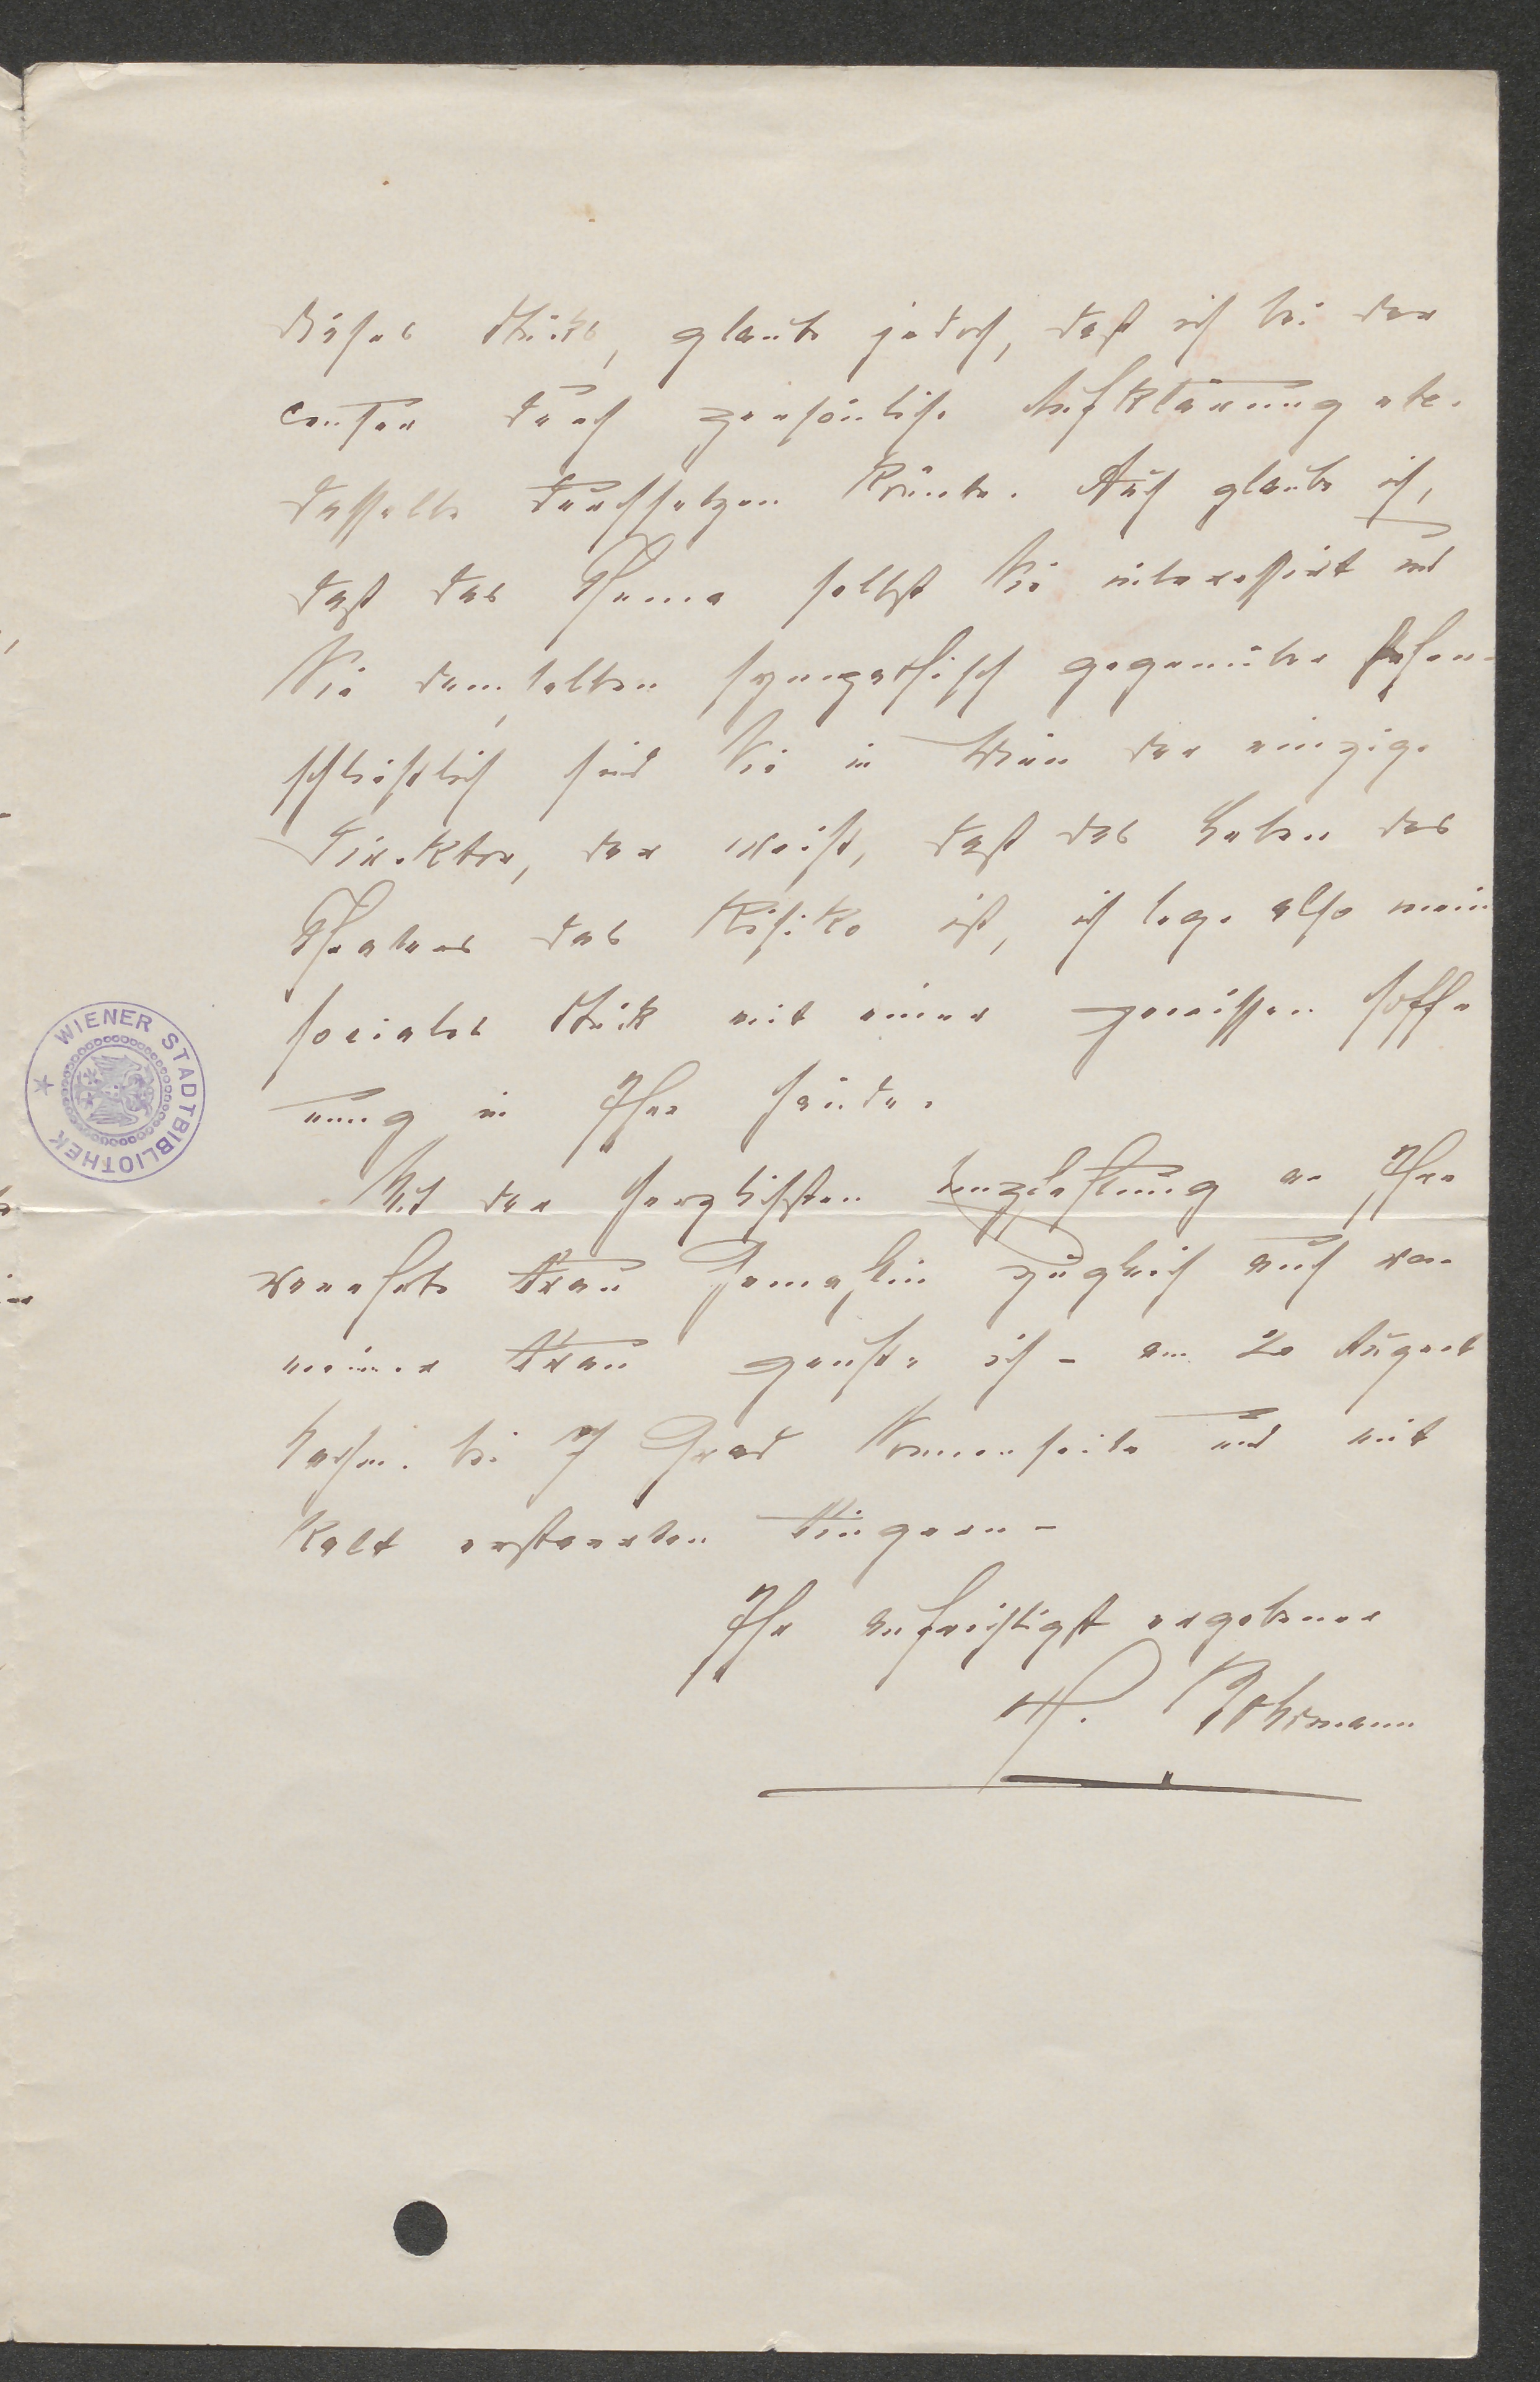 dieses Stücks, glaube jedoch, daß ich bei der
Censur durch persönliche Aufklärung etc.
dasselbe durchsetzen könnte. Auch glaube ich,
daß das Thema selbst Sie interessirt und
Sie demselben sympathisch gegenüber stehen
schließlich sind Sie in Wien der einzige
Direktor, der weiß, daß das Leben des
Theaters das Risiko ist, ich lege also mein
sociales Stück mit einer gewissen Hoff-
nung in Ihre Hände.
Mit der herzlichsten Empfehlung an Ihre
verehrte Frau Gemahlin zugleich auch von
meiner Frau grüße ich – am 20 August
bei 7 Grad Sonnenseite und mit
kalt erstarrten Fingern –
Ihr aufrichtigst ergebener
Pohlmann
WIENER STADTBIBLIOTHEK